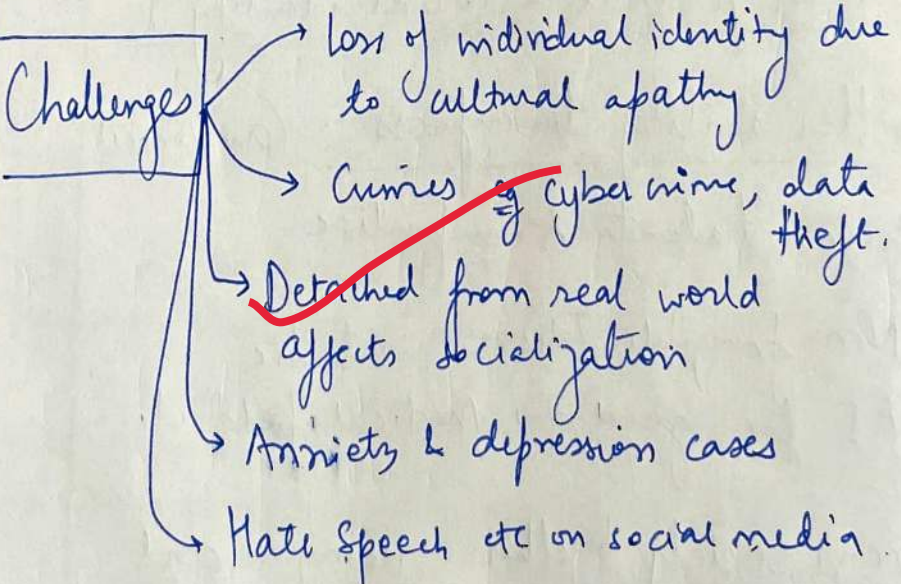 Challenges
Loss of individual identity due
to cultural apathy
Crimes eg cyber crime, data
theft.
Detached from real world
affects socialization
Anxiety & depression cases
Hate Speech etc on social media.